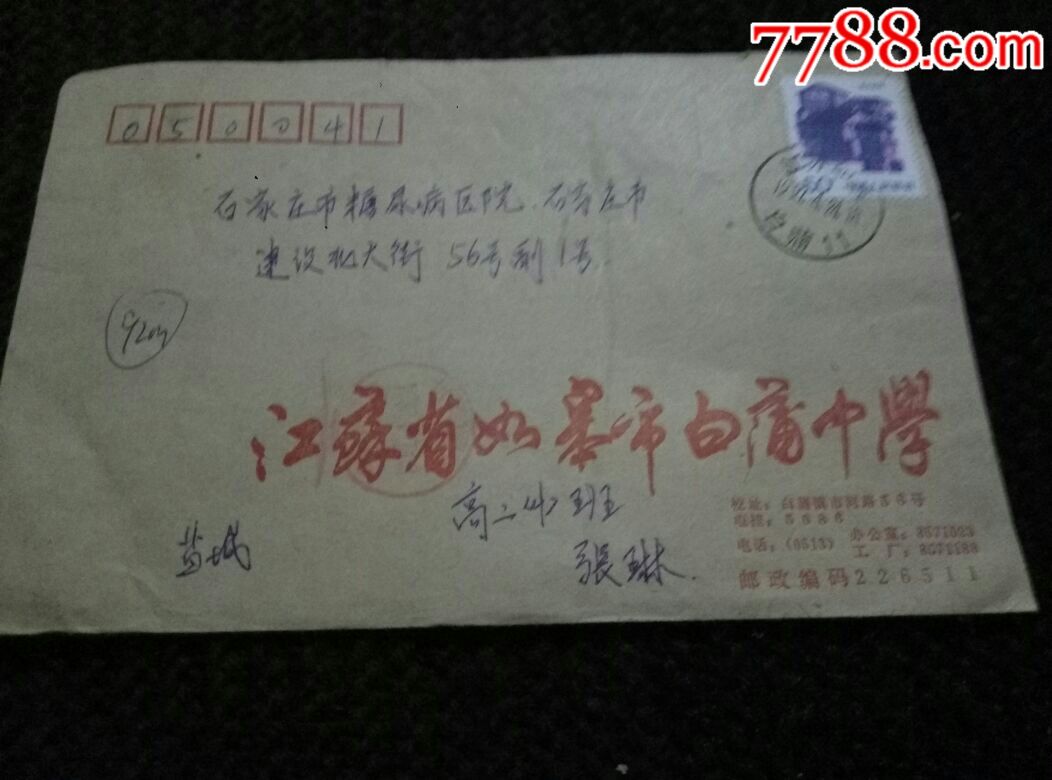 7788.com
050041
石家庄市糖尿病医院 石家庄市
建设北大街 56号副1号
江蘇省如皋市白蒲中學
高二(4)班
張琳
盐城
校址：白蒲镇市河路56号
电挂：5686
电话：(0513) 办公室：8571023
工厂：8571188
邮政编码226511